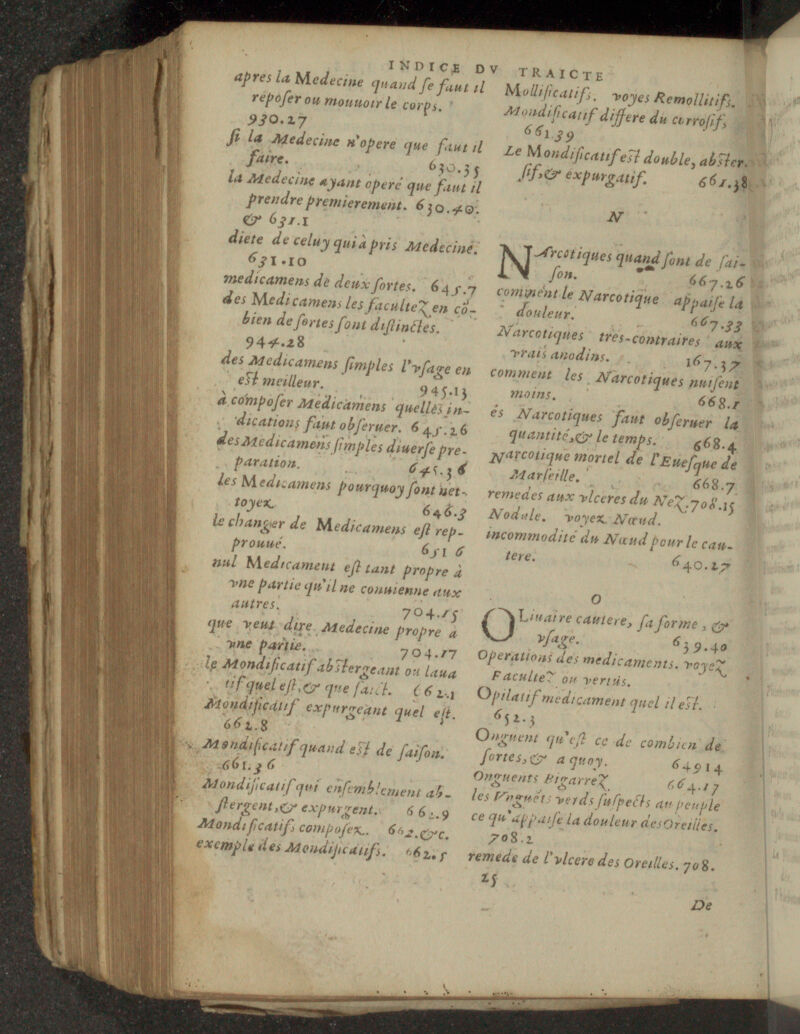 INDICE DV TRAICTE
apres la Medecine quand se faut il
reposer ou mouuoir le corps.
930.27
si la Medecine n'opere que faut il
faire. 630.35
la Medecine ayant operé que faut il
prendre premierement. 630.40.
& 631.1
diete de celuy qui à pris Medecine.
631.10
medicamens de deux sortes. 645.7
des Medicamens les facultez en cō-
bien de sortes sont distinctes.
944.28
des Medicamens simples l'vsage en
est meilleur. 945.13
à composer Medicamens quelles in-
dications faut obseruer. 645.26
des Medicamens simples diuerse pre-
paration. 645.36
les Medicamens pourquoy sont net-
toyez. 646.3
le changer de Medicamens est rep-
prouué. 651 6
nul Medicament est tant propre à
vne partie qu'il ne conuienne aux
autres. 704.15
que veut dire Medecine propre a
vne partie. 704.17
le Mondificatif abstergeant ou laua
tif quel est, & que faict. 662.1
Mondificatif expurgeant quel est.
662.8
Mondificatif quand est de saison.
661.36
Mondificatif qui ensemblement ab-
stergent, & expurgent. 662.9
Mondificatifs composez. 662.&c.
exemple des Mondificatifs. 662.5
Mollificatifs. voyes Remollitifs.
Mondificatif differe du corrosif,
661.39
Le Mondificatif est double, abster-
sif, & expurgatif. 661.38
N
NArcotiques quand sont de sai-
son. 667.26
comment le Narcotique appaise la
douleur. 667.33
Narcotiques tres-contraires aux
vrais anodins. 167.37
comment les Narcotiques nuisent
moins. 668.1
es Narcotiques faut obseruer la
quantité, & le temps. 668.4
Narcotique mortel de l'Euesque de
Marseille. 668.7
remedes aux vlceres du Nez. 708.15
Nodule. voyez Nœud.
incommodité du Nœud pour le cau-
tere. 640.27
O
OLiuaire cautere, sa forme, &
vsage. 639.40
Operations des medicaments. voyez
Facultez ou vertus.
Opilatif medicament quel il est.
652.3
Onguent qu'est ce de combien de
sortes, & a quoy. 649 14
Onguents Bigarrez 664.17
les Vnguēts verds suspects au peuple
ce qu'appaise la douleur des Oreilles.
708.2
remede de l'vlcere des Oreilles. 708.
25
De